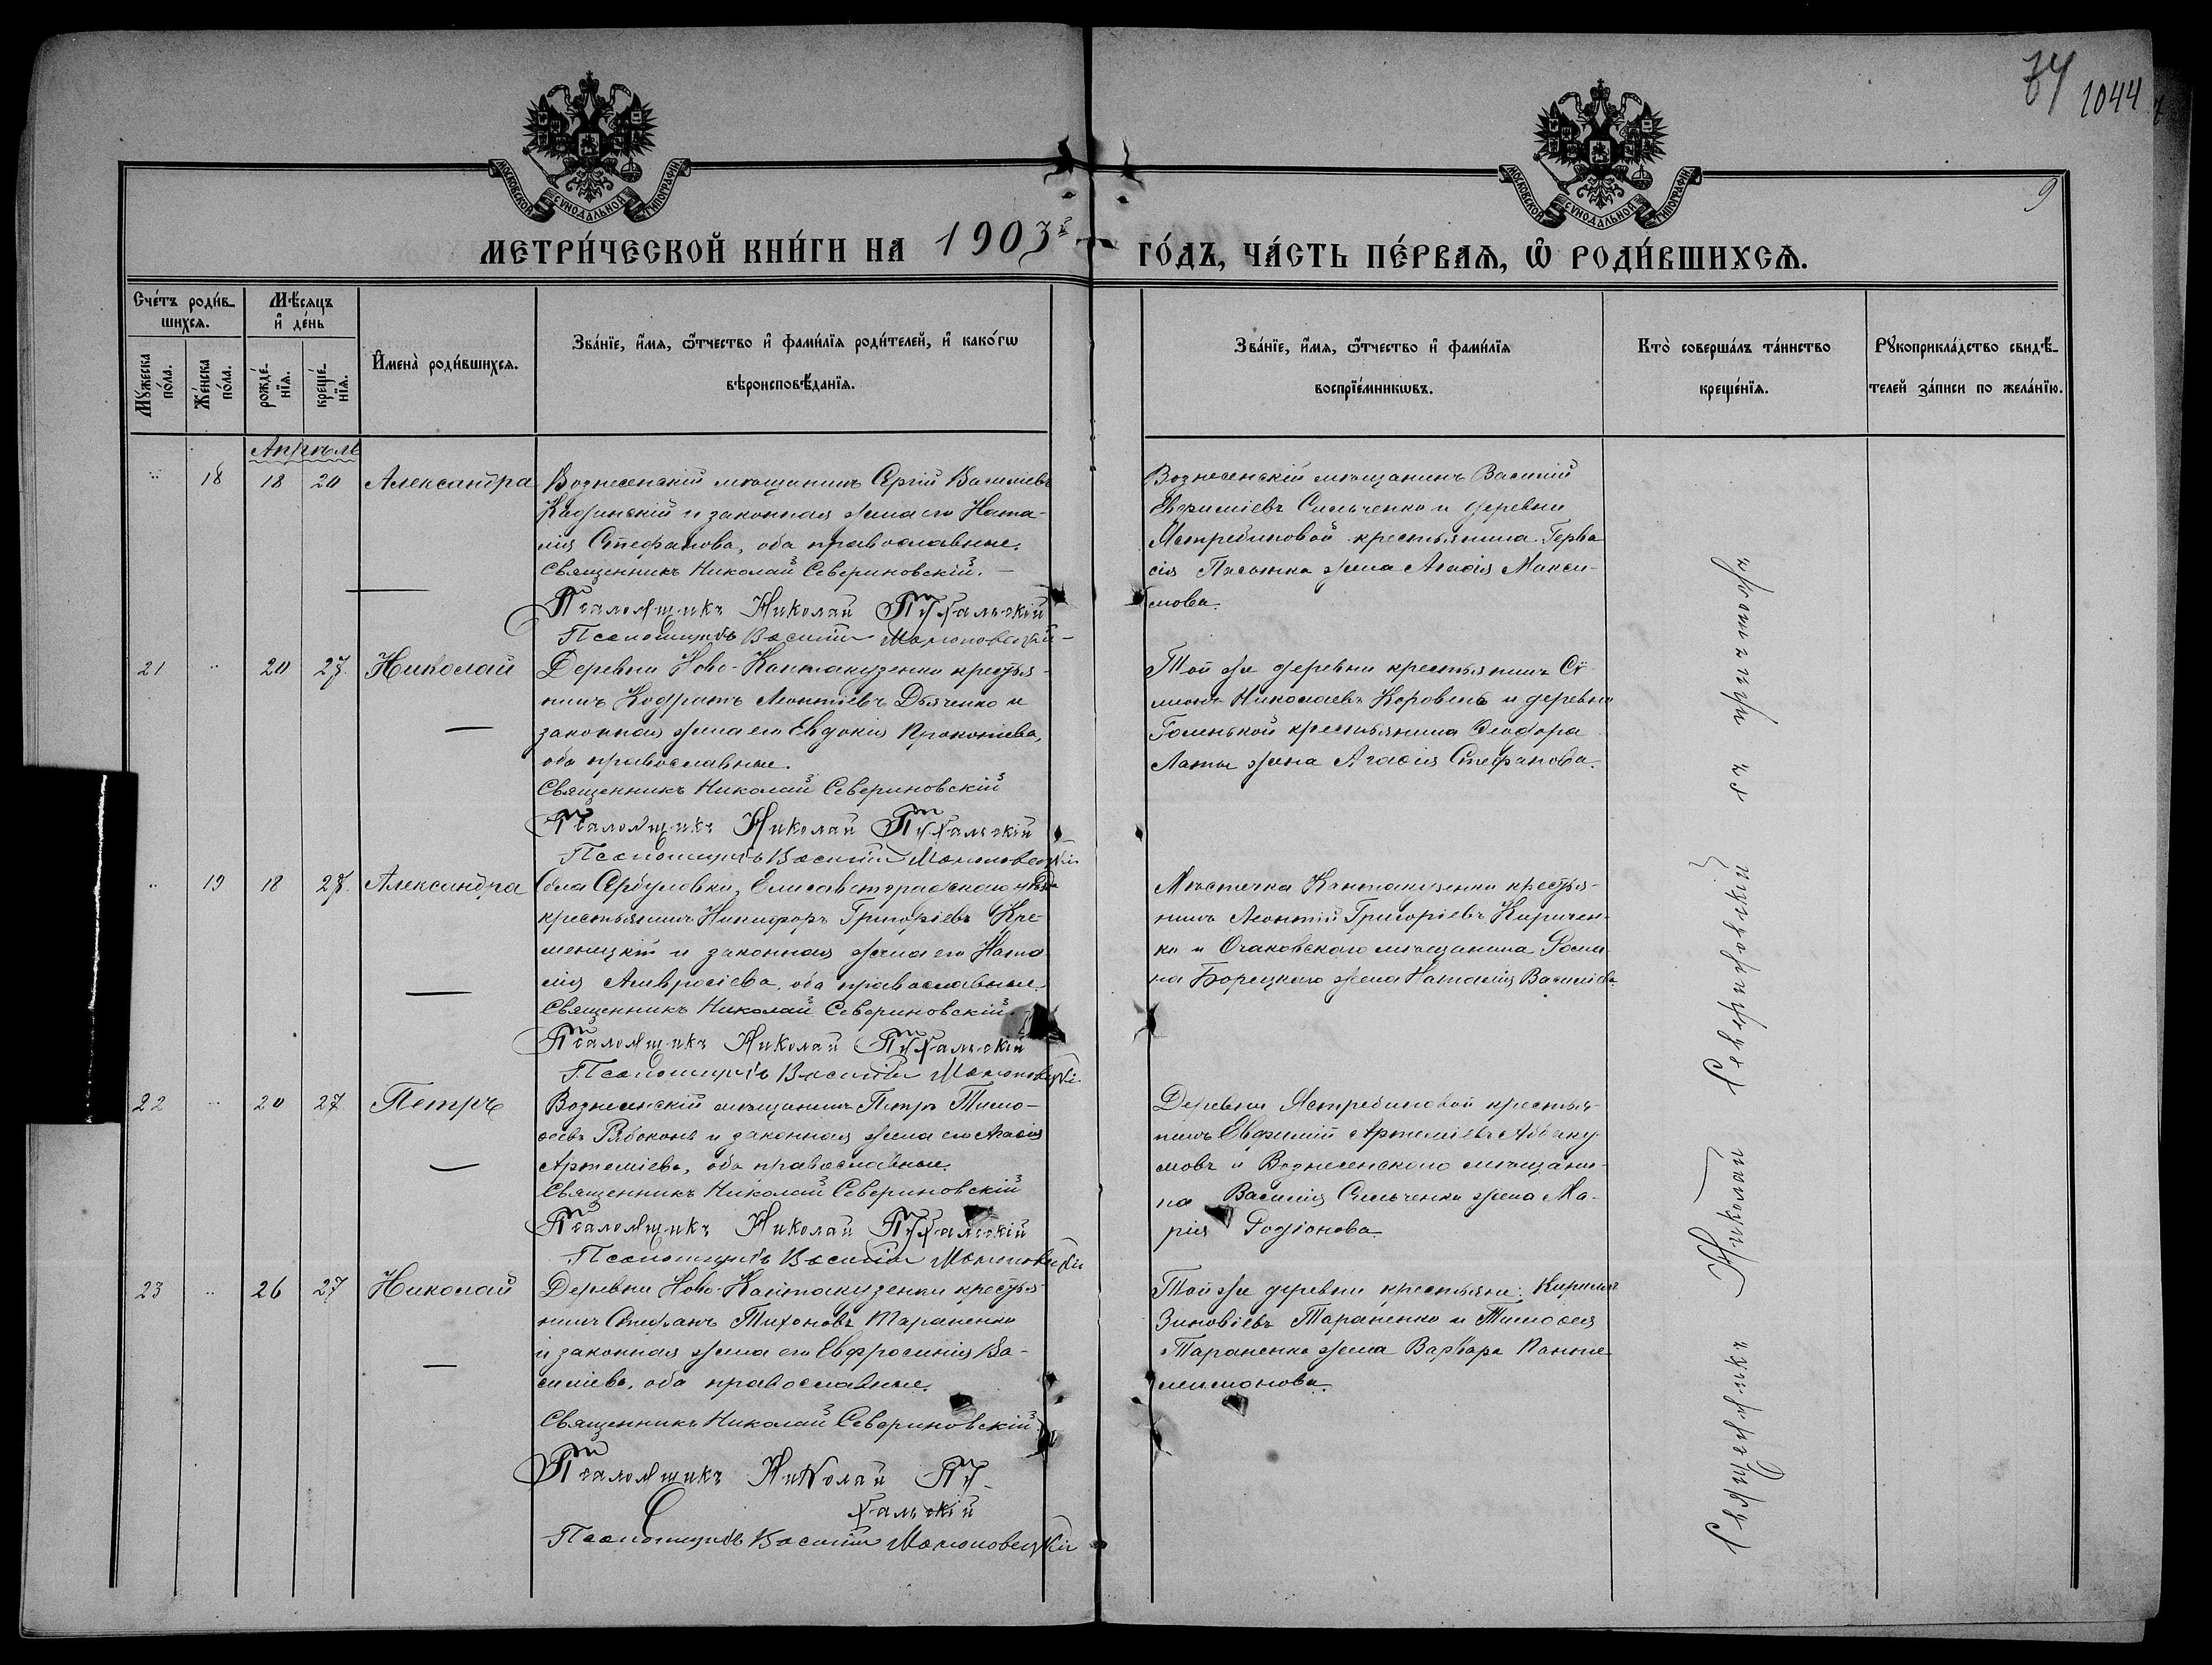 74 1044
9
МОСКОВСКОЙ СѴНОДАЛЬНОЙ ТИПОГРАФІИ
МОСКОВСКОЙ СѴНОДАЛЬНОЙ ТИПОГРАФІИ
МЕТРИ́ЧЕСКОЙ КНИ́ГИ НА 1903й ГО́ДЪ, ЧА́СТЬ ПЕ́РВАѦ, Ѽ РОДИ́ВШИХСѦ.
Сче́тъ роди́в-
шихсѧ.
Мѣ́сяцъ
и҆ де́нь
Мꙋ́жеска
по́ла.
Же́нска
по́ла.
рожде́-
нїѧ.
креще́-
нїѧ.
И҆мена̀ роди́вшихсѧ.
Зва́нїе, и҆́мѧ, ѻ҆́тчество и҆ фами́лїѧ роди́телей, и҆ како́гѡ
вѣроисповѣ́данїѧ.
Зва́нїе, и҆́мѧ, ѻ҆́тчество и҆ фами́лїѧ
воспрїе́мникѡвъ.
Кто̀ соверша́лъ та́инство
креще́нїѧ.
Рꙋкоприкла́дство свидѣ́-
телей за́писи по жела́нїю.
Апрѣль
18 18 20 Александра
Вознесенскій мѣщанинъ Сергій Василіевъ
и законная жена его Ната-
лія Стефанова, оба православные.
Священникъ Николай Севериновскій.
Псаломщикъ Николай Пухальскій
Псаломщикъ Василій
Вознесенскій мѣщанинъ Василій
Евфиміевъ Сильченко и деревни
Ястребиновой крестьянина Герва
сія жена Агафія Макси-
мова.
21 20 27 Николай
Деревни Ново-Кантакузенки крестья-
нинъ Кодратъ Леонтіевъ Дьяченко и
законная жена его Евдокія Прокопіева,
оба православные.
Священникъ Николай Севериновскій
Псаломщикъ Николай Пухальскій
Псаломщикъ Василій
Той же деревни крестьянинъ Сѵ-
меонъ Николаевъ и деревни
крестьянина Ѳеодора
жена Агафія Стефанова.
19 18 27 Александра
Села Сербуловки, Елисаветградскаго уѣзда
крестьянинъ Никифоръ Григоріевъ Кре-
меницкій и законная жена его Ната
лія Амвросіева, оба православные.
Священникъ Николай Севериновскій.
Псаломщикъ Николай Пухальскій
Псаломщикъ Василій
Мѣстечка Кантакузенки крестья-
нинъ Леонтій Григоріевъ Киричен-
ко и Очаковскаго мѣщанина Рома-
на Борецкаго жена Наталія Василіева.
22 20 27 Петръ
Вознесенскій мѣщанинъ Петръ Тимо-
ѳеевъ Рябоконь и законная жена его Агафія
Артеміева, оба православные.
Священникъ Николай Севериновскій
Псаломщикъ Николай Пухальскій
Псаломщикъ Василій
Деревни Ястребиновой крестья-
нинъ Евфимій Артеміевъ Аввaку-
мовъ и Вознесенскаго мѣщани-
на Василія Сильченка жена Ма-
рія Родіонова.
23 26 27 Николай
Деревни Ново-Кантакузенки крестья-
нинъ Стефанъ Тихоновъ Тараненко
и законная жена его Евфросинія Ва-
силіева, оба православные.
Священникъ Николай Севериновскій.
Псаломщикъ Николай Пу-
хальскій
Псаломщикъ Василій
Той же деревни крестьяне: Кириллъ
Зиновіевъ Тараненко и Тимоѳея
Тараненка жена Варвара Панте
леимонова.
Священникъ Николай Севериновскій съ причтомъ